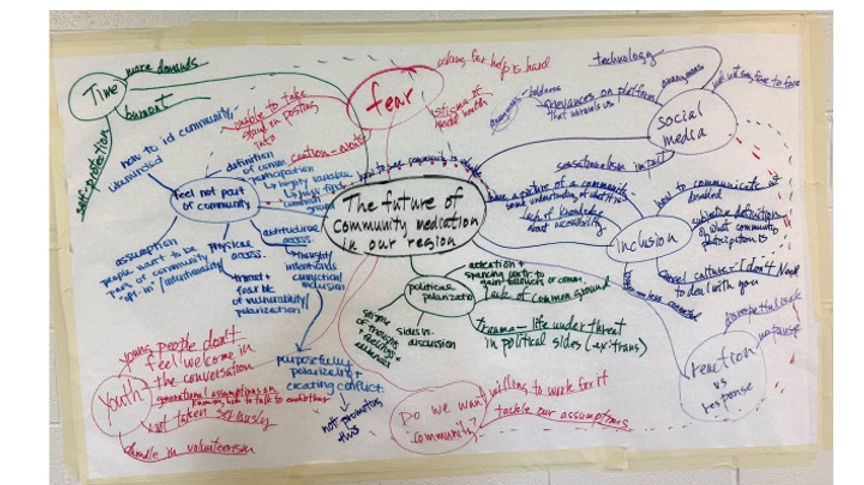 Time
more demands
burnout
self-protection
fear
asking for help is hard
stigma of
unable to take
stand in posting
info
technology
anonymous
boldness
grievances on platform
that unravels us
social
media
sensationalism impact
how to id community,
likeminded
feel not part
of community
definition
of comm.
participation
↳ highly variable
↳ how find
common
ground
how to see community is valuable
The future of
community mediation
in our region
have a picture of a community -
some understanding of what it is
lack of knowledge
about accessibility
Inclusion
how to communicate w/
disabled
subjective definition
of what community
participation is
cancel culture = I don't need
to deal with you
assumption
people want to be
part of community
"opt-in" / intentionality
physical
access.
attitudinal
access.
connection/
inclusion
threat +
of vulnerability/
polarization
political
polarization
lack of common ground
trauma - life under threat
in political sides (ex: trans)
sides vs.
discussion
of thoughts,
feelings +
purposefully
polarizing +
creating conflict.
not promoting
this
reaction
vs
response
no pause
Youth
young people don't
feel welcome in
the conversation
generational assumptions on
knowing how to talk to each other
not taken seriously
dwindle in volunteerism
Do we want
community?
willing to work for it
tackle our assumptions